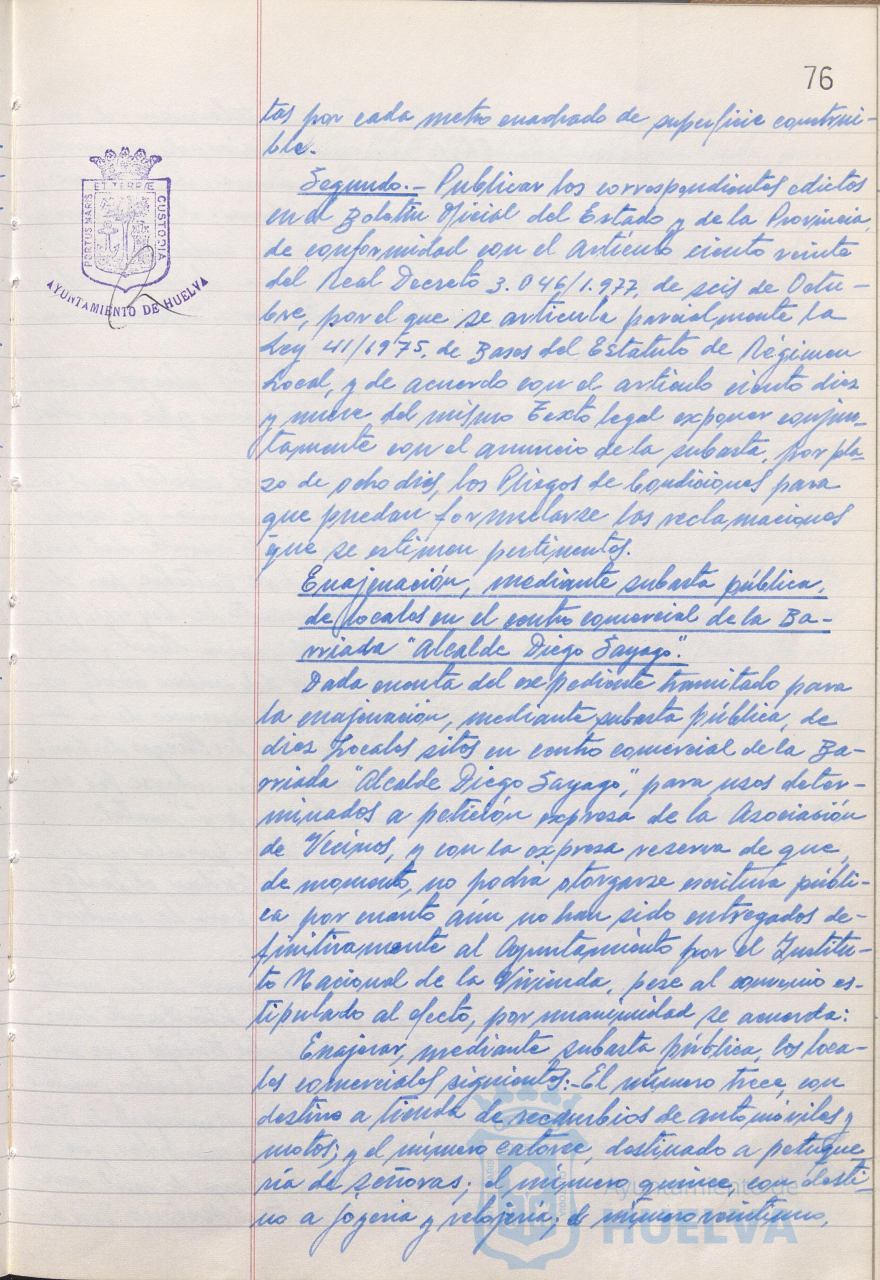 76
tas por cada metro cuadrado de superficie construi-
ble.
Segundo.- Publicar los correspondientes edictos
en el Boletín Oficial del Estado y de la Provincia,
de conformidad con el artículo ciento veinte
del Real Decreto 3.046/1.977, de seis de Octu-
bre, por el que se articula parcialmente la
Ley 41/1975, de Bases del Estatuto de Régimen
Local, y de acuerdo con el artículo ciento diez
y nueve del mismo Texto legal exponer conjun-
tamente con el anuncio de la subasta, por pla-
zo de ocho días, los Pliegos de Condiciones para
que puedan formularse las reclamaciones
que se estimen pertinentes.
Enajenación, mediante subasta pública,
de locales en el centro comercial de la Ba-
rriada "Alcalde Diego Sayago".
Dada cuenta del expediente tramitado para
la enajenación, mediante subasta pública, de
diez Locales sitos en centro comercial de la Ba-
rriada "Alcalde Diego Sayago", para usos deter-
minados a petición expresa de la Asociación
de Vecinos, y con la expresa reserva de que,
de momento, no podrá otorgarse escritura públi-
ca por cuanto aún no han sido entregados de-
finitivamente al Ayuntamiento por el Institu-
to Nacional de la Vivienda, pese al convenio es-
tipulado al efecto, por unanimidad se acuerda:
Enajenar, mediante subasta pública, los loca-
les comerciales siguientes:-El número trece, con
destino a tienda de recambios de automóviles y
motos; y el número catorce, destinado a peluque-
ría de señoras; el número quince, con desti-
no a joyería y relojería; el número veintiuno,
PORTUS MARIS
ET TERRÆ
CUSTODIA
AYUNTAMIENTO DE HUELVA
Ayuntamiento de
HUELVA